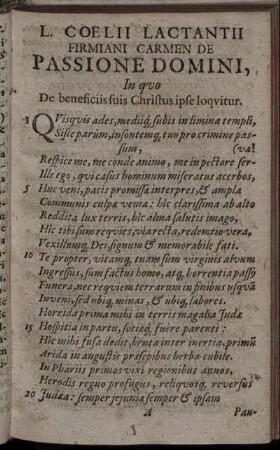 L. COELII LACTANTII
FIRMIANI CARMEN DE
PASSIONE DOMINI,
In quo
De beneficiis suis Christus ipse loqvitur.
1 QVisqvis ades, mediiq́; subis in limina templi,
Siste parùm, insontemq; tuo pro crimine pas-
sum, (va!
Respice me, me conde animo, me in pectore ser-
Ille ego, qvi casus hominum miseratus acerbos,
5 Huc veni, pacis promissæ interpres, & ampla
Communis culpæ venia: hîc clarissima ab alto
Reddita lux terris, hîc alma salutis imago,
Hic tibi sum reqvies, via recta, redemtio vera,
Vexillumq; Dei signum & memorabile fati.
10 Te propter, vitamq; tuam sum virginis alvum
Ingressus, sum factus homo, atq; horrentia passꝰ
Funera, nec reqviem terrarum in finibus usqvā
Inveni, sed ubiq; minas, & ubiq; labores.
Horrida prima mihi in terris magalia Judæ
15 Hospitia in partu, sociæq́; fuêre parenti:
Hîc mihi fusa dedit, bruta inter inertia, primū
Arida in angustis præsepibus herba cubile.
In Phariis primos vixi regionibus annos,
Herodis regno profugus, reliqvosq; reversus
20 Judæa: semper jejunia semper & ipsam
A Pau-